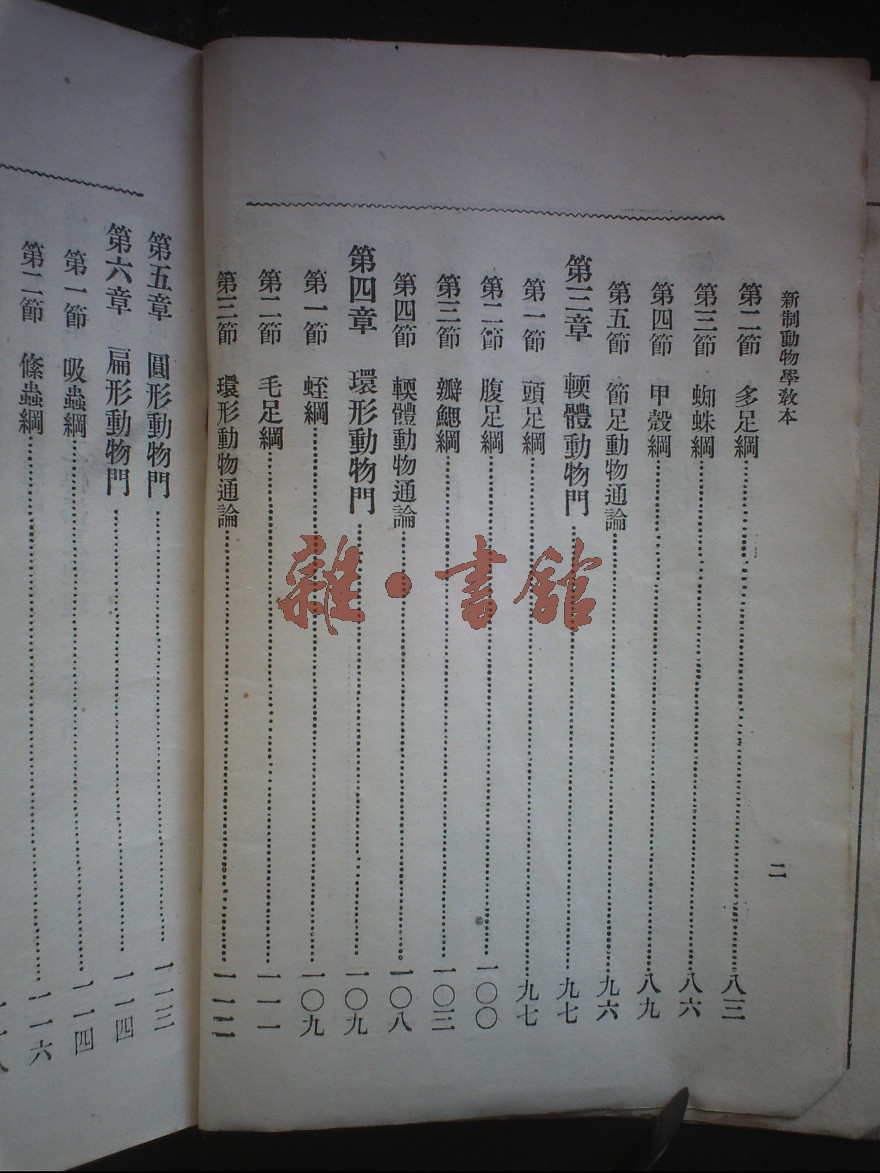 新制動物學教本
二
第二節 多足綱 八三
第三節 蜘蛛綱 八六
第四節 甲殼綱 八九
第五節 節足動物通論 九六
第三章 輭體動物門 九七
第一節 頭足綱 九七
第二節 腹足綱 一〇〇
第三節 瓣鰓綱 一〇三
第四節 輭體動物通論 一〇八
第四章 環形動物門 一〇九
第一節 蛭綱 一〇九
第二節 毛足綱 一一一
第三節 環形動物通論 一一二
第五章 圓形動物門 一一三
第六章 扁形動物門 一一四
第一節 吸蟲綱 一一四
第二節 絛蟲綱 一一六
雜·書館